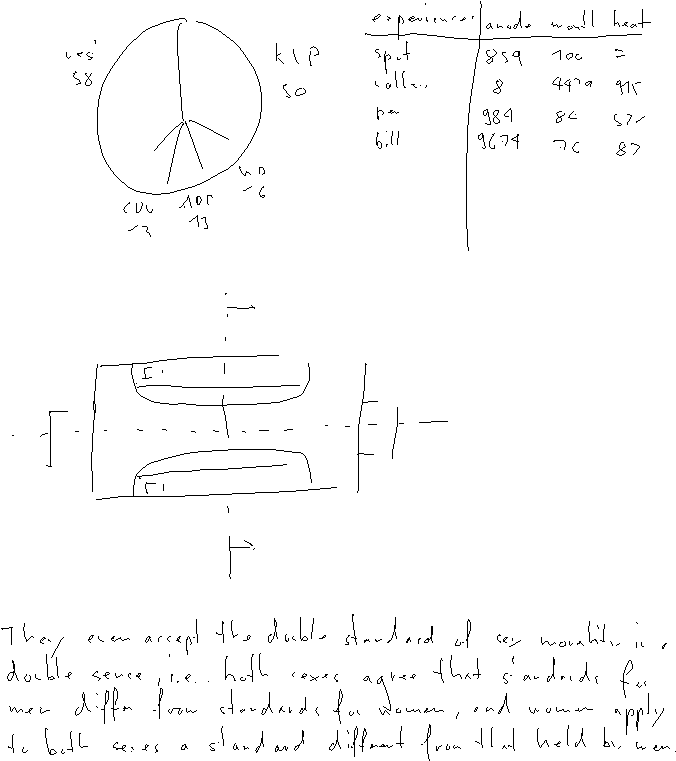 experience: anode wall heat
spot 859 100 =
8 4479 915
per 984 86
bill 9674 76 87
KIP
50
58
13
They even accept the double standard of sex morality in a
double sense, i.e. both sexes agree that standards for
men differ from standards for women, and women apply
to both sexes a standard different from that held by men.